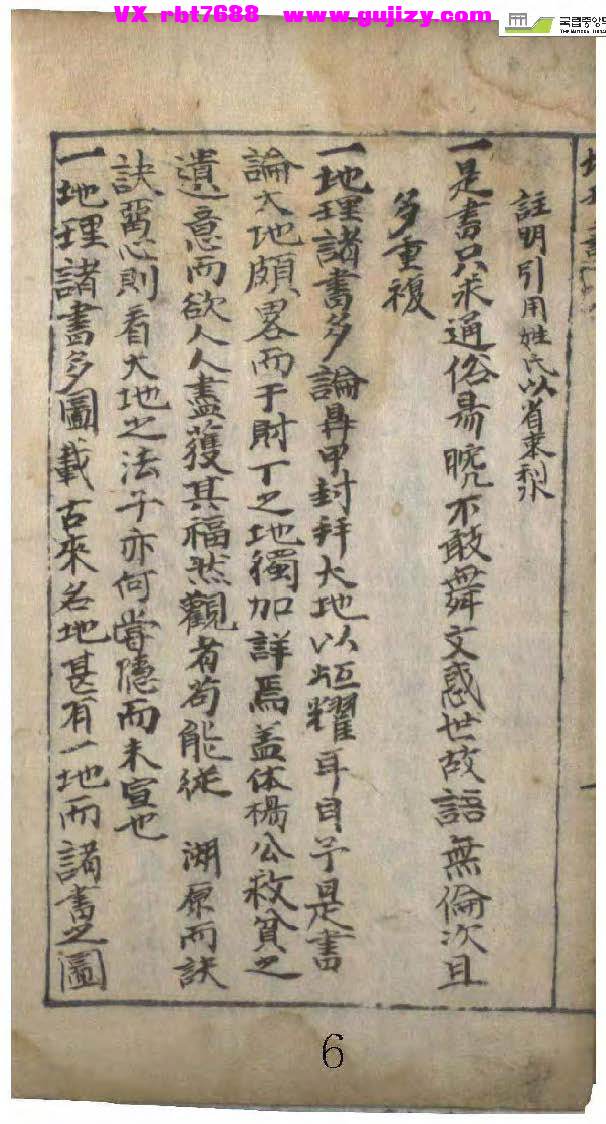 VX rbt7688 www.gujizy.com
국립중앙도
註明引用姓氏以省棗梨
一是書只求通俗易曉不敢舞文惑世故語無倫次且
多重複
一地理諸書多論鼎甲封拜大地以炫耀耳目予是書
論大地頗畧而于財丁之地獨加詳焉盖体楊公救貧之
遺意而欲人人盡獲其福然觀者苟能從 溯原而訣
訣畧心則看大地之法予亦何嘗隱而未宣也
一地理諸書多圖載古來名地甚有一地而諸書之圖
6